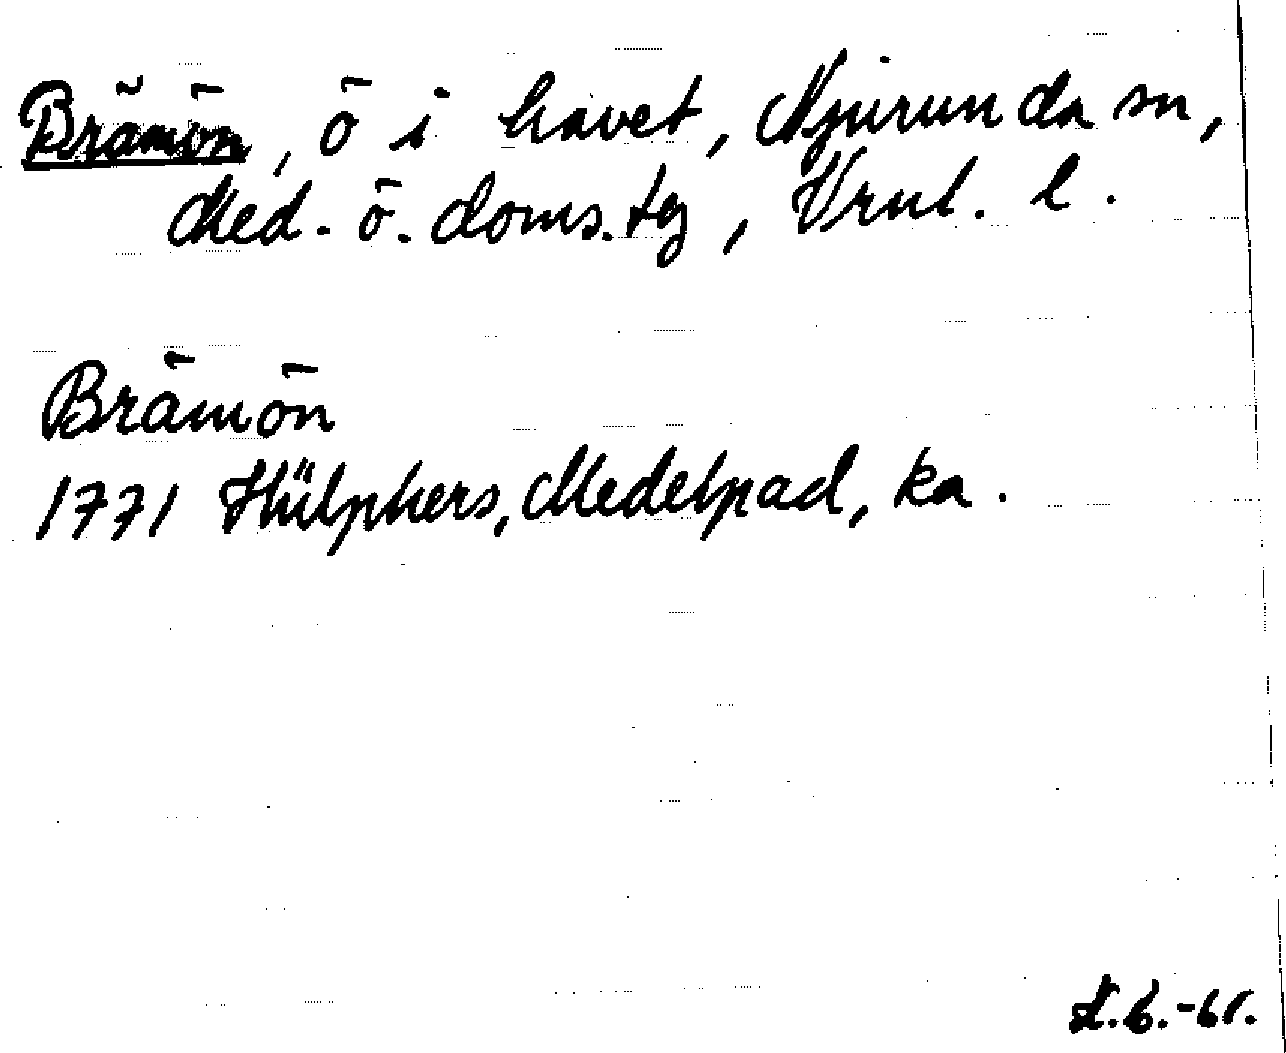 Brämön, ö i havet, Njurunda sn,
Med. ö. doms. tg, Vrnl. l.
Brämön
1771 Hülphers, Medelpad, ka.